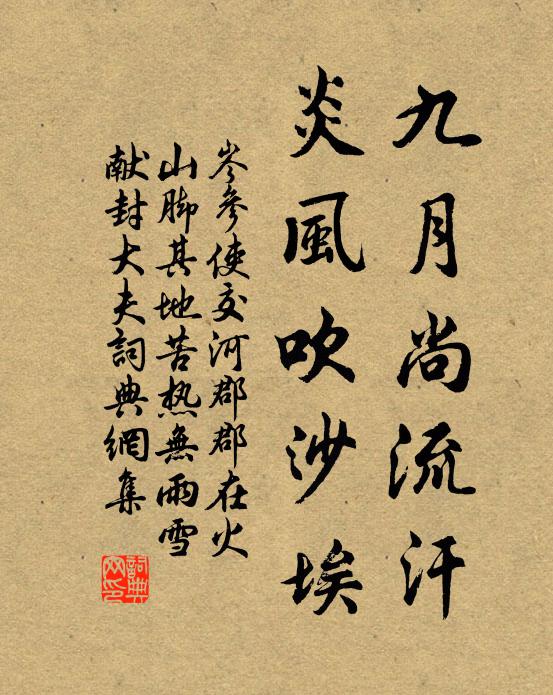 九月尚流汗
炎風吹沙埃
岑參使交河郡郡在火
山脚其地苦热無雨雪
献封大夫詞典網集
詞典
网印